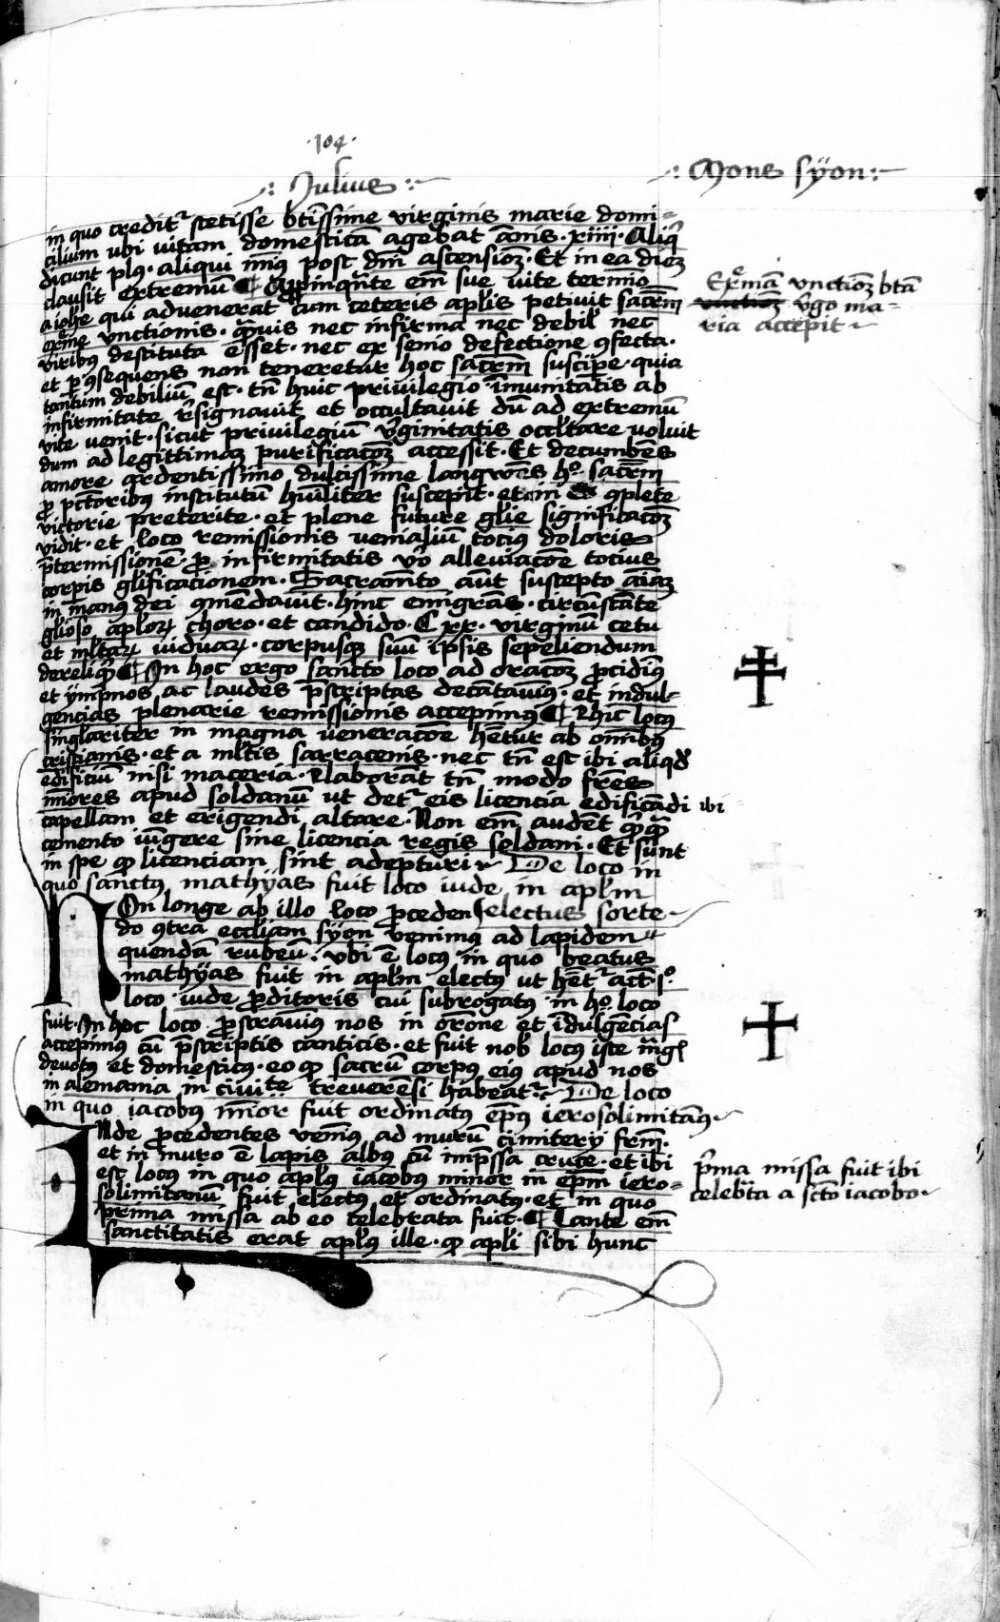 ·104·
·: Julius :·
·: Mons syon :·
in quo creditr stetisse btissime virginis marie domi=
cilium ubi vitam domesticā agebat ānis · xiiii · Aliqi
dicunt plus · aliqui minus post dm̄ ascensionē · Et in ea die
clausit extremū ¶ Appinqn̄te em̄ sue vite termino
a iohe qui advenerat cum ceteris aplis petivit sacrm̄
exme unctionis · qmvis nec infirma nec debil nec
viribus destituta esset · nec ex senio defectione ꝯfecta ·
et p ꝯsequens non teneretur hoc sacrm̄ suscipe · quia
tantum debiliū est · tn̄ huic privilegio īmunitatis ab
infirmitate rsignavit et occultavit dū ad extremū
vite venit · sicut privilegiū vginitatis occltare voluit
dum ad legittimā purificacōꝫ accessit · Et decumbēs
amore ardentissimo dulcissime langwēs ho sacrm̄
p pctoribus institutū huīliter suscepit · et in eo ꝯplete
victorie preterite · et plene future glie significacōꝫ
vidit · et loco remissionis venialiū tocius doloris
p̄termissionē p infirmitatis vo alleviacōe tocius
corpis glificationem · Sacramēto aūt suscepto aīaꝫ
in manus dei ꝯmēdavit · hinc emigrās · circūstāte
glioso aploꝝ choro · et candido · C xx · virginū cetu
et mltaꝝ viduaꝝ · corpusqꝫ suū ipsis sepeliendum
dereliqt ¶ In hoc ergo sancto loco ad oracōꝫ pcidimus
et ympnos ac laudes p̄scriptas decātavimus · et indul=
gencias plenarie remissionis accepimus ¶ Et hic locus
singlariter in magna veneracōe hētur ab omībus
cristianis · et a mltis sarracenis · nec tn̄ est ibi aliqd
edificiū nisi maceria · Et laborāt tn̄ modo fres
mīores apud soldanū ut detr eis licencia edificādi ibi
capellam et erigendi altare · Non em̄ audēt qicqā
cemento iūgere sine licencia regis soldani · Et sūnt
in spe qd licenciam sint adepturi De loco in
quo sanctus mathyas fuit loco iude in aplm
electus sorte
Non longe ab illo loco pceden
do ꝯtra eccliam syon venimus ad lapidem
quendā rubeū · ubi ē locus in quo beatus
mathyas fuit in aplm electus ut hētr act · 1o
loco iude pditoris cui subrogatus in ho loco
fuit · In hoc loco pstravimus nos in orōne et īdulgēcias
accepimus cū p̄scriptis canticis · et fuit nob locus iste mgl
devotus et domesticus · eo qd sacrū corpus eius apud nos
in alemania in civite treverēsi habeatr De loco
in quo iacobus mīor fuit ordinatus ep̄us ierosolimitāus
Inde pcedentes venimus ad murū cimitery frm̄ ·
et in muro ē lapis albus cū imp̄ssa cruce · et ibi
est locus in quo aplus iacobus minor in ep̄m iero=
solimitanū fuit electus et ordinatus · et in quo
prima missa ab eo celebrata fuit · ¶ Tante em̄
sanctitatis erat aplus ille · qd apli sibi hunc
Exmā unctionꝫ btā
vgo ma=
ria accepit
Pma missa fuit ibi
celebta a scto iacobo